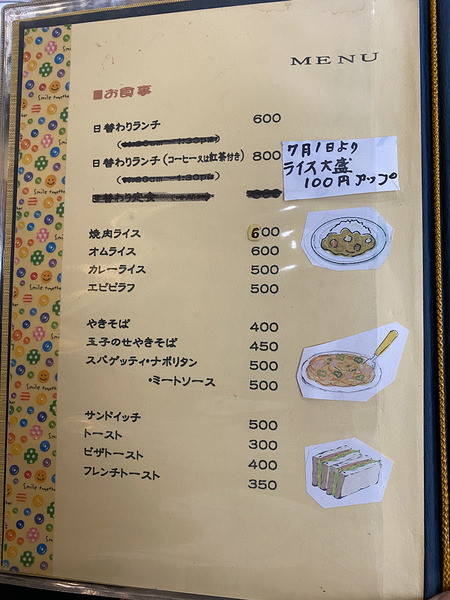 MENU
■お食事
日替わりランチ 600
日替わりランチ(コーヒー又は紅茶付き) 800
7月1日より
ライス大盛
100円アップ
焼肉ライス 600
オムライス 600
カレーライス 500
エビピラフ 500
やきそば 400
玉子のせやきそば 450
スパゲッティ・ナポリタン 500
・ミートソース 500
サンドイッチ 500
トースト 300
ピザトースト 400
フレンチトースト 350
Smile together